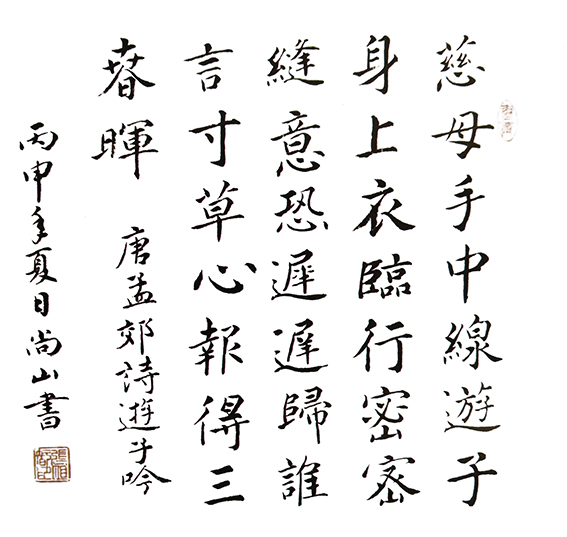 慈母手中線遊子
身上衣臨行密密
縫意恐遲遲歸誰
言寸草心報得三
春暉 唐孟郊詩遊子吟
丙申年夏日尚山書